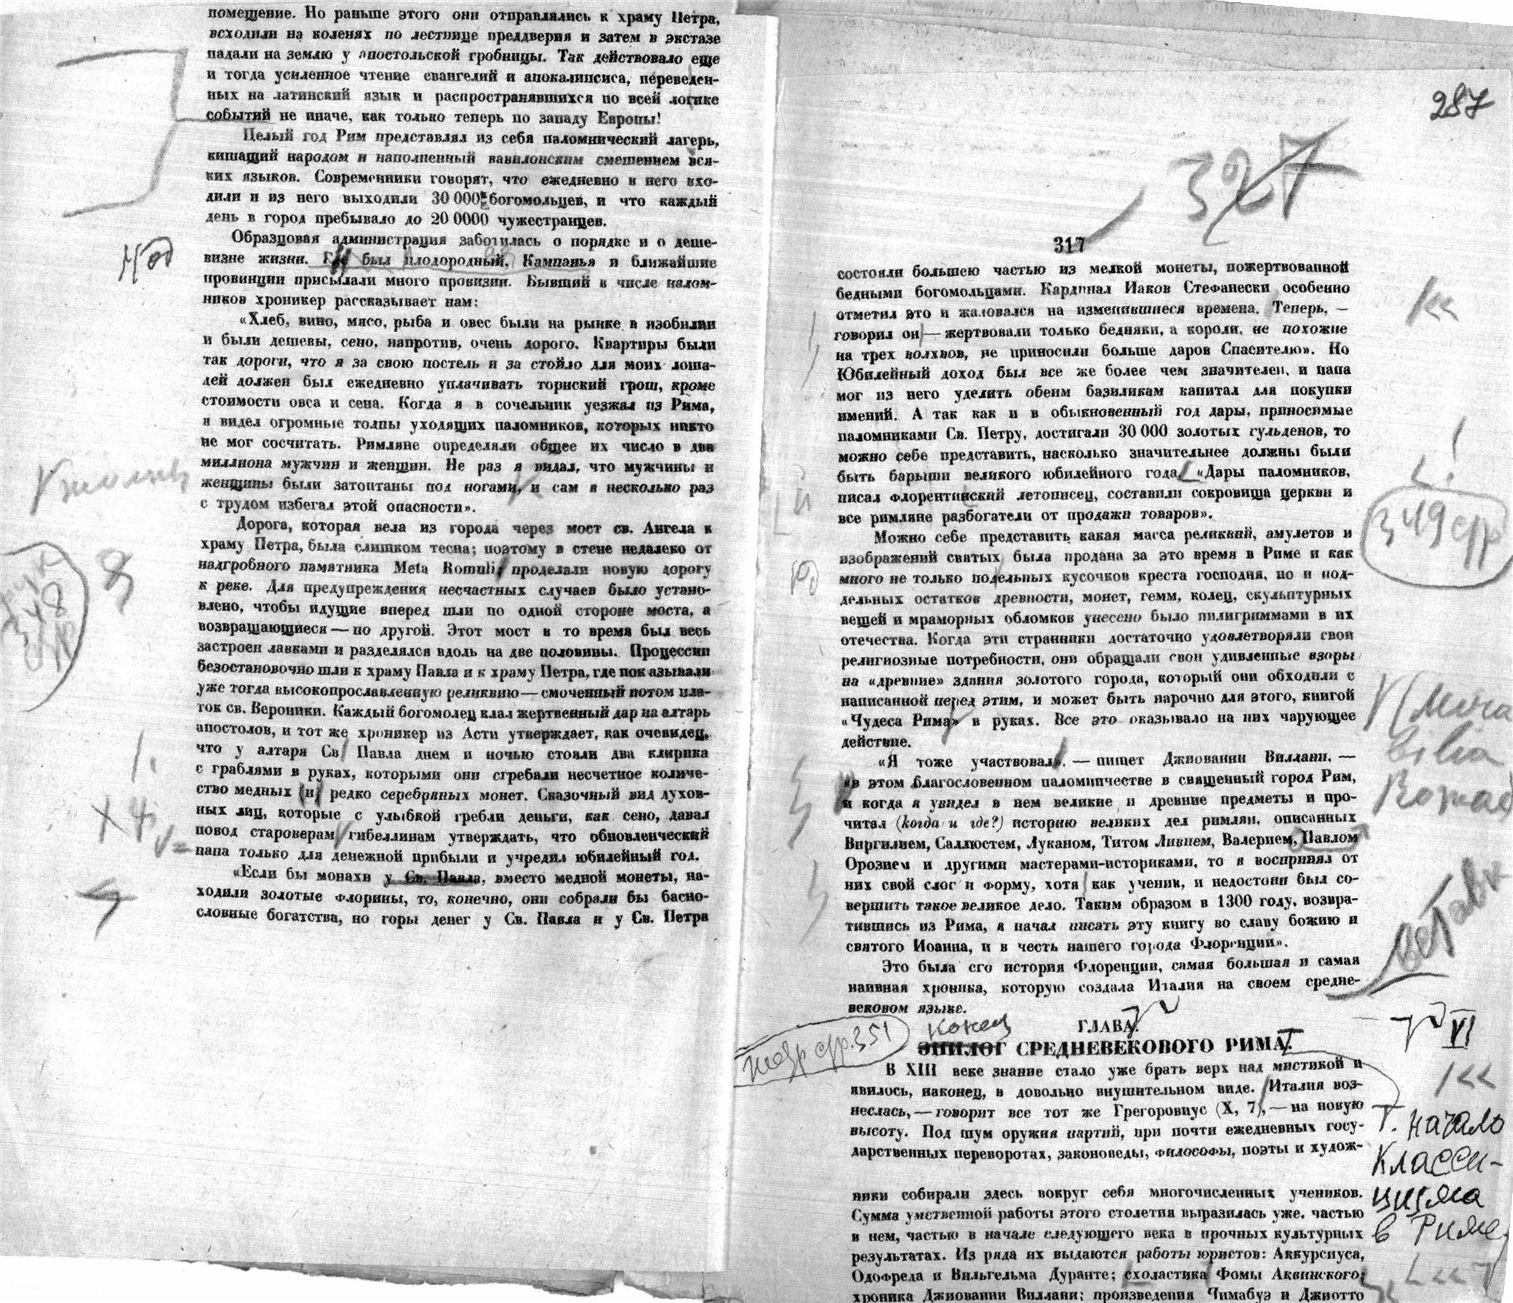 помещение. Но раньше этого они отправлялись к храму Петра,
всходили на коленях по лестнице преддверия и затем в экстазе
падали на землю у апостольской гробницы. Так действовало еще
и тогда усиленное чтение евангелий и апокалипсиса, переведен-
ных на латинский язык и распространявшихся по всей логике
событий не иначе, как только теперь по западу Европы!
Целый год Рим представлял из себя паломнический лагерь,
кишащий народом и наполненный вавилонским смешением вся-
ких языков. Современники говорят, что ежедневно в него вхо-
дили и из него выходили 30 000 богомольцев, и что каждый
день в город пребывало до 20 0000 чужестранцев.
Образцовая администрация заботилась о порядке и о деше-
визне жизни. Год был плодородный, Кампанья и ближайшие
провинции присылали много провизии. Бывший в числе палом-
ников хроникер рассказывает нам:
«Хлеб, вино, мясо, рыба и овес были на рынке в изобилии
и были дешевы, сено, напротив, очень дорого. Квартиры были
так дороги, что я за свою постель и за стойло для моих лоша-
дей должен был ежедневно уплачивать торнский грош, кроме
стоимости овса и сена. Когда я в сочельник уезжал из Рима,
я видел огромные толпы уходящих паломников, которых никто
не мог сосчитать. Римляне определяли общее их число в два
миллиона мужчин и женщин. Не раз я видал, что мужчины и
женщины были затоптаны под ногами, и сам я несколько раз
с трудом избегал этой опасности».
Дорога, которая вела из города через мост св. Ангела к
храму Петра, была слишком тесна; поэтому в стене недалеко от
надгробного памятника Meta Romuli проделали новую дорогу
к реке. Для предупреждения несчастных случаев было устано-
влено, чтобы идущие вперед шли по одной стороне моста, а
возвращающиеся — по другой. Этот мост в то время был весь
застроен лавками и разделялся вдоль на две половины. Процессии
безостановочно шли к храму Павла и к храму Петра, где показывали
уже тогда высокопрославленную реликвию — смоченный потом пла-
ток св. Вероники. Каждый богомолец клал жертвенный дар на алтарь
апостолов, и тот же хроникер из Асти утверждает, как очевидец,
что у алтаря Св Павла днем и ночью стояли два клирика
с граблями в руках, которыми они сгребали несчетное количе-
ство медных (и) редко серебряных монет. Сказочный вид духов-
ных лиц, которые с улыбкой гребли деньги, как сено, давал
повод староверам гибеллинам утверждать, что обновленческий
папа только для денежной прибыли и учредил юбилейный год.
«Если бы монахи у Св. Павла, вместо медной монеты, на-
ходили золотые флорины, то, конечно, они собрали бы басно-
словные богатства, но горы денег у Св. Павла и у Св. Петра
Год
348
стр
287
327
317
состояли большею частью из мелкой монеты, пожертвованной
бедными богомольцами. Кардинал Иаков Стефанески особенно
отметил это и жаловался на изменившиеся времена. Теперь, —
говорил он — жертвовали только бедняки, а короли, не похожие
на трех волхвов, не приносили больше даров Спасителю». Но
Юбилейный доход был все же более чем значителен, и папа
мог из него уделить обеим базиликам капитал для покупки
имений. А так как и в обыкновенный год дары, приносимые
паломниками Св. Петру, достигали 30 000 золотых гульденов, то
можно себе представить, насколько значительнее должны были
быть барыши великого юбилейного года. «Дары паломников,
писал флорентийский летописец, составили сокровища церкви и
все римляне разбогатели от продажи товаров».
Можно себе представить какая масса реликвий, амулетов и
изображений святых была продана за это время в Риме и как
много не только подельных кусочков креста господня, но и под-
дельных остатков древности, монет, гемм, колец, скульптурных
вещей и мраморных обломков унесено было пилигримами в их
отечества. Когда эти странники достаточно удовлетворяли свои
религиозные потребности, они обращали свои удивленные взоры
на «древние» здания золотого города, который они обходили с
написанной перед этим, и может быть нарочно для этого, книгой
«Чудеса Рима» в руках. Все это оказывало на них чарующее
действие.
«Я тоже участвовал». — пишет Джиованни Виллани, —
«в этом благословенном паломничестве в священный город Рим,
и когда я увидел в нем великие и древние предметы и про-
читал (когда и где?) историю великих дел римлян, описанных
Виргилием, Саллюстем, Луканом, Титом Ливием, Валерием, Павлом
Орозием и другими мастерами-историками, то я воспринял от
них свой слог и форму, хотя как ученик, и недостоин был со-
вершить такое великое дело. Таким образом в 1300 году, возвра-
тившись из Рима, я начал писать эту книгу во славу божию и
святого Иоанна, и в честь нашего города Флоренции».
Это была его история Флоренции, самая большая и самая
наивная хроника, которую создала Италия на своем средне-
вековом языке.
349 стр
вставк
ГЛАВА VI
конец
ЭПИЛОГ СРЕДНЕВЕКОВОГО РИМА.
стр. 351
В XIII веке знание стало уже брать верх над мистикой и
явилось, наконец, в довольно внушительном виде. Италия воз-
неслась, — говорит все тот же Грегоровиус (X, 7), — на новую
высоту. Под шум оружия партий, при почти ежедневных госу-
дарственных переворотах, законоведы, философы, поэты и худож-
ники собирали здесь вокруг себя многочисленных учеников.
Сумма умственной работы этого столетия выразилась уже, частью
в нем, частью в начале следующего века в прочных культурных
результатах. Из ряда их выдаются работы юристов: Аккурсиуса,
Одофреда и Вильгельма Дуранте; схоластика Фомы Аквинского;
хроника Джиованни Виллани; произведения Чимабуэ и Джиотто
начало
Класси-
цизма
в Риме